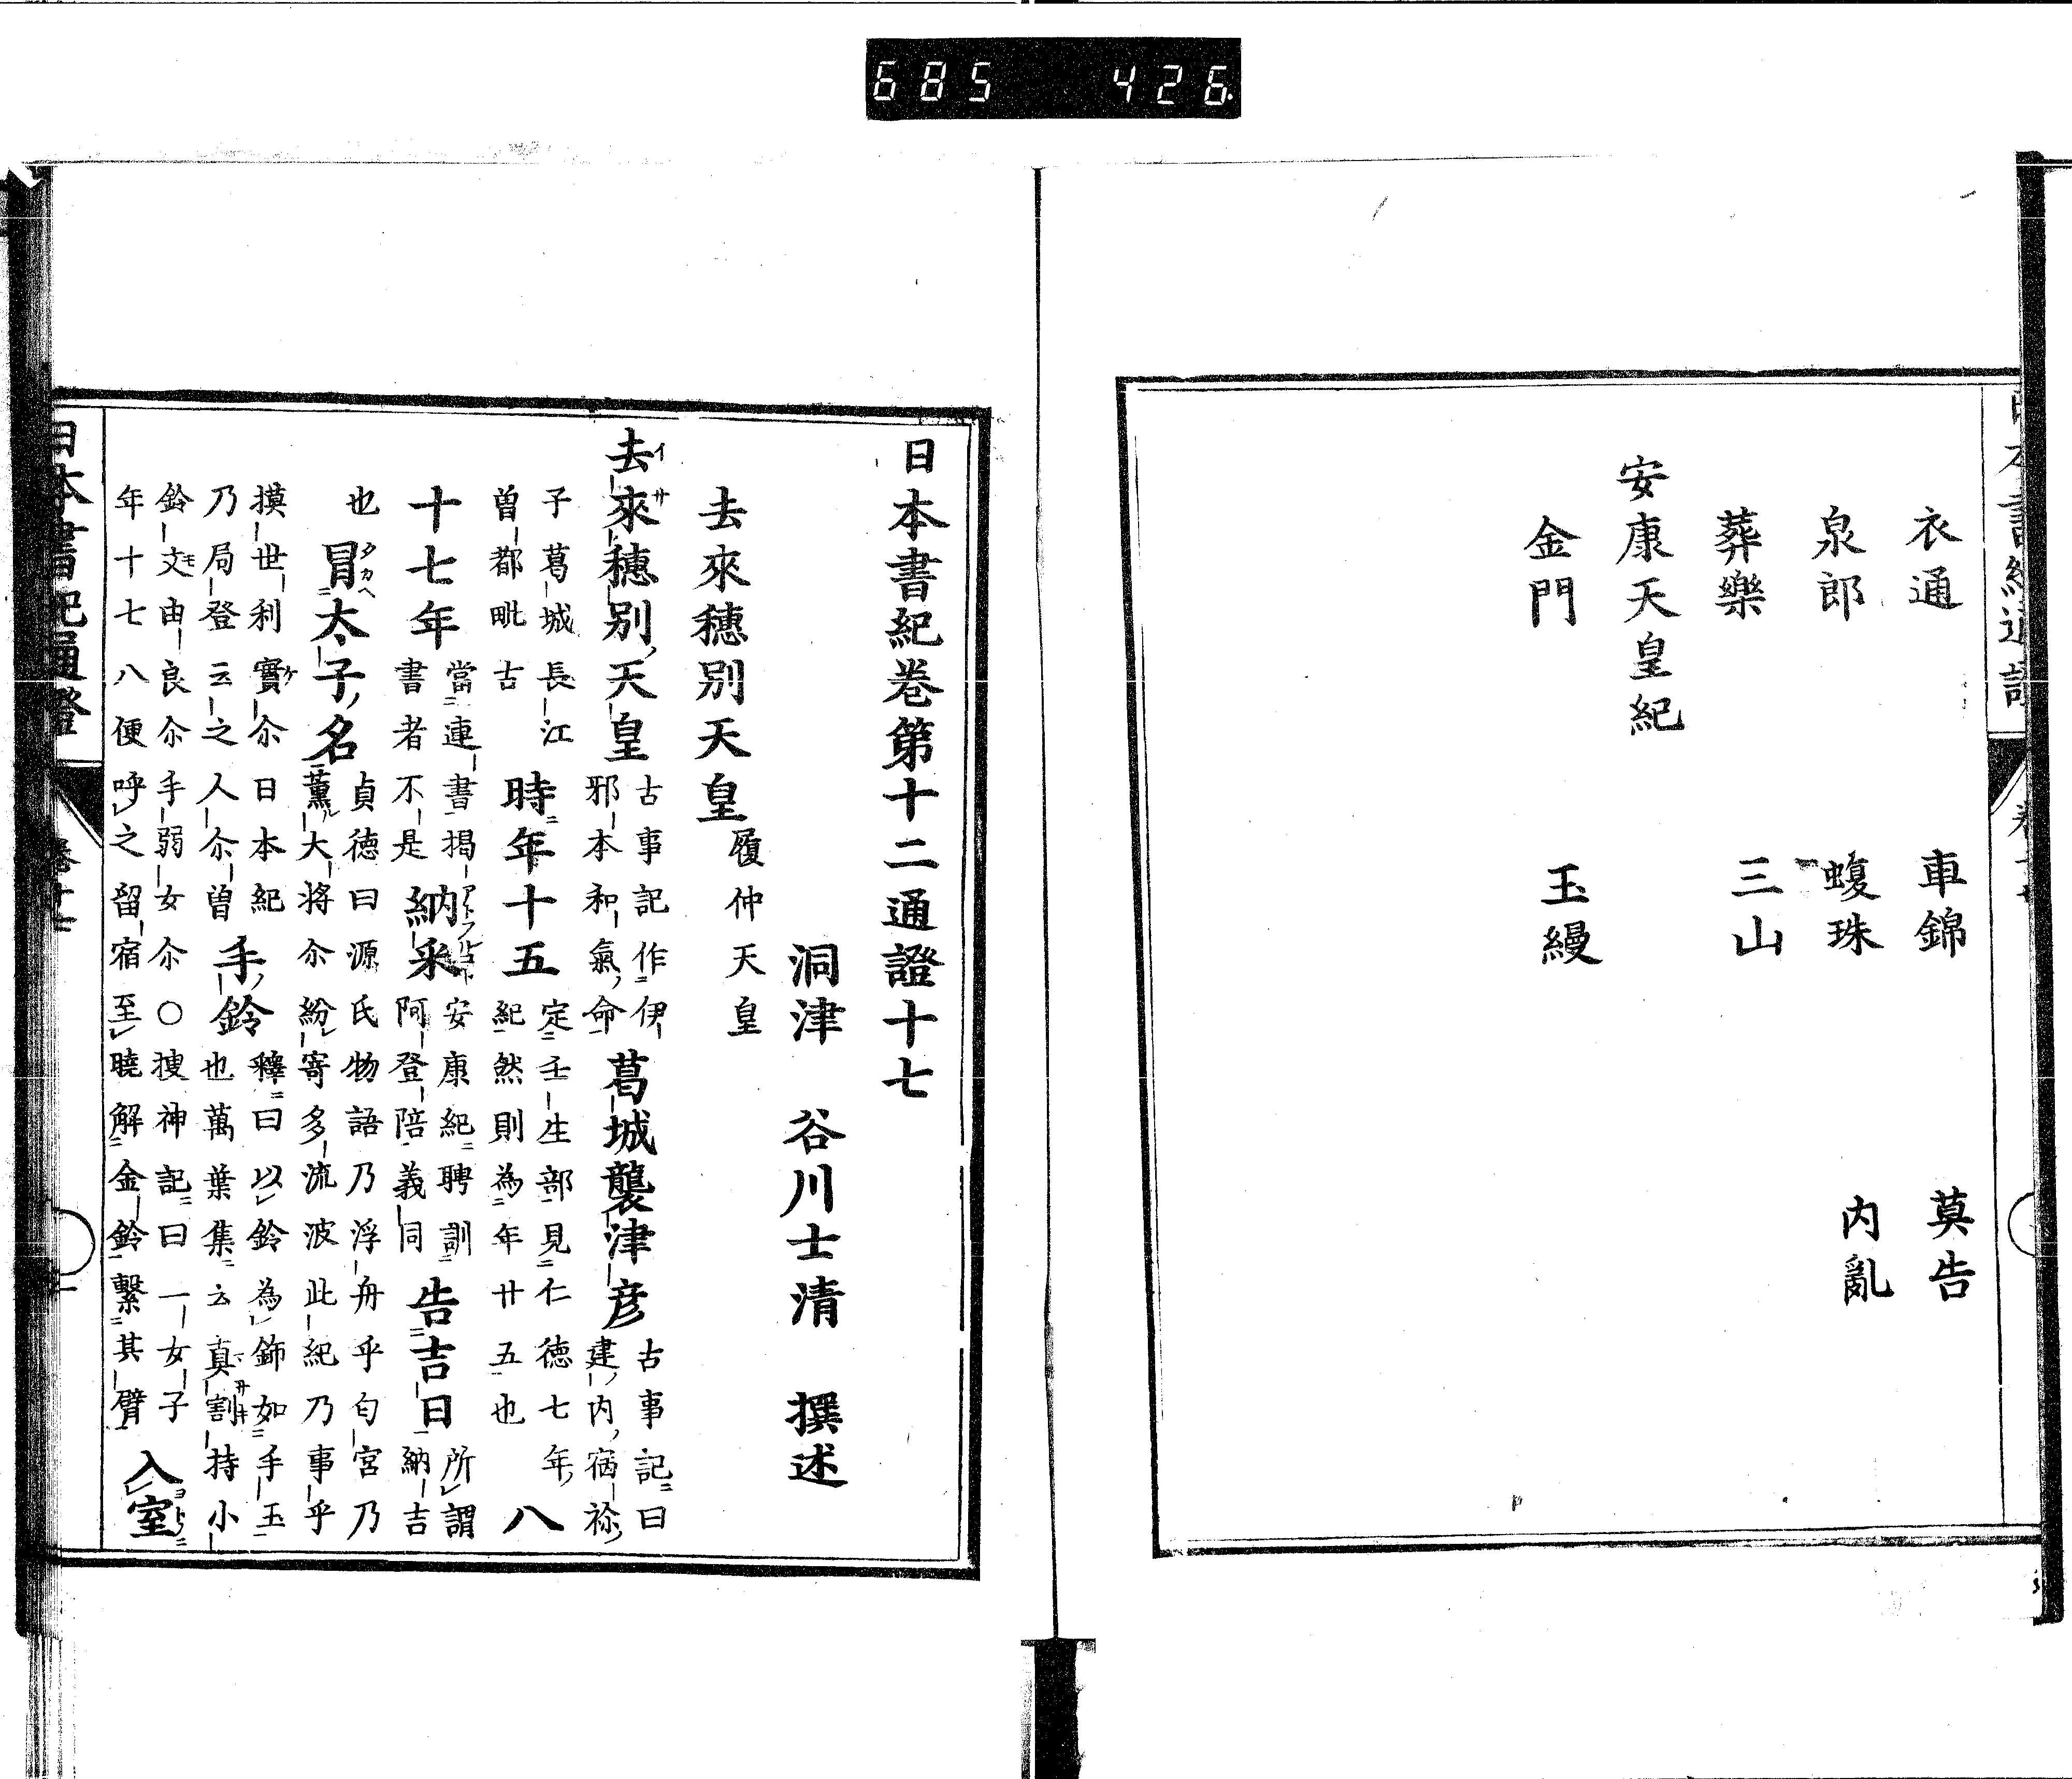 685 426
衣通 車錦 莫告
泉郎 蝮珠 内亂
葬樂 三山
安康天皇紀
金門 玉縵
日本書紀卷第十二通證十七
洞津 谷川士清 撰述
去來穗別天皇 履仲天皇
去來穗別天皇 古事記作伊
邪本和氣命 葛城襲津彦 古事記曰
建内宿祢
子葛城長江
曽都毗古 時年十五 定壬生部見仁德七年
紀然則為年廿五也 八
十七年 當連書揭
書者不是 納采 安康紀聘訓
阿登陪義同 告吉日 所謂
納吉
也 冒太子名 貞徳曰源氏物語乃浮舟乎匂宮乃
薫大将尒紛寄多流波此紀乃事乎
摸世利 實尒日本紀
乃局登云之人尒曽 手鈴 釋曰以鈴為飾如手玉
也萬葉集云真割持小
鈴文由良尒手弱女尒○捜神記曰一女子
年十七八便呼之留宿至曉解金鈴繋其臂 入室
日本書紀通證 卷十七